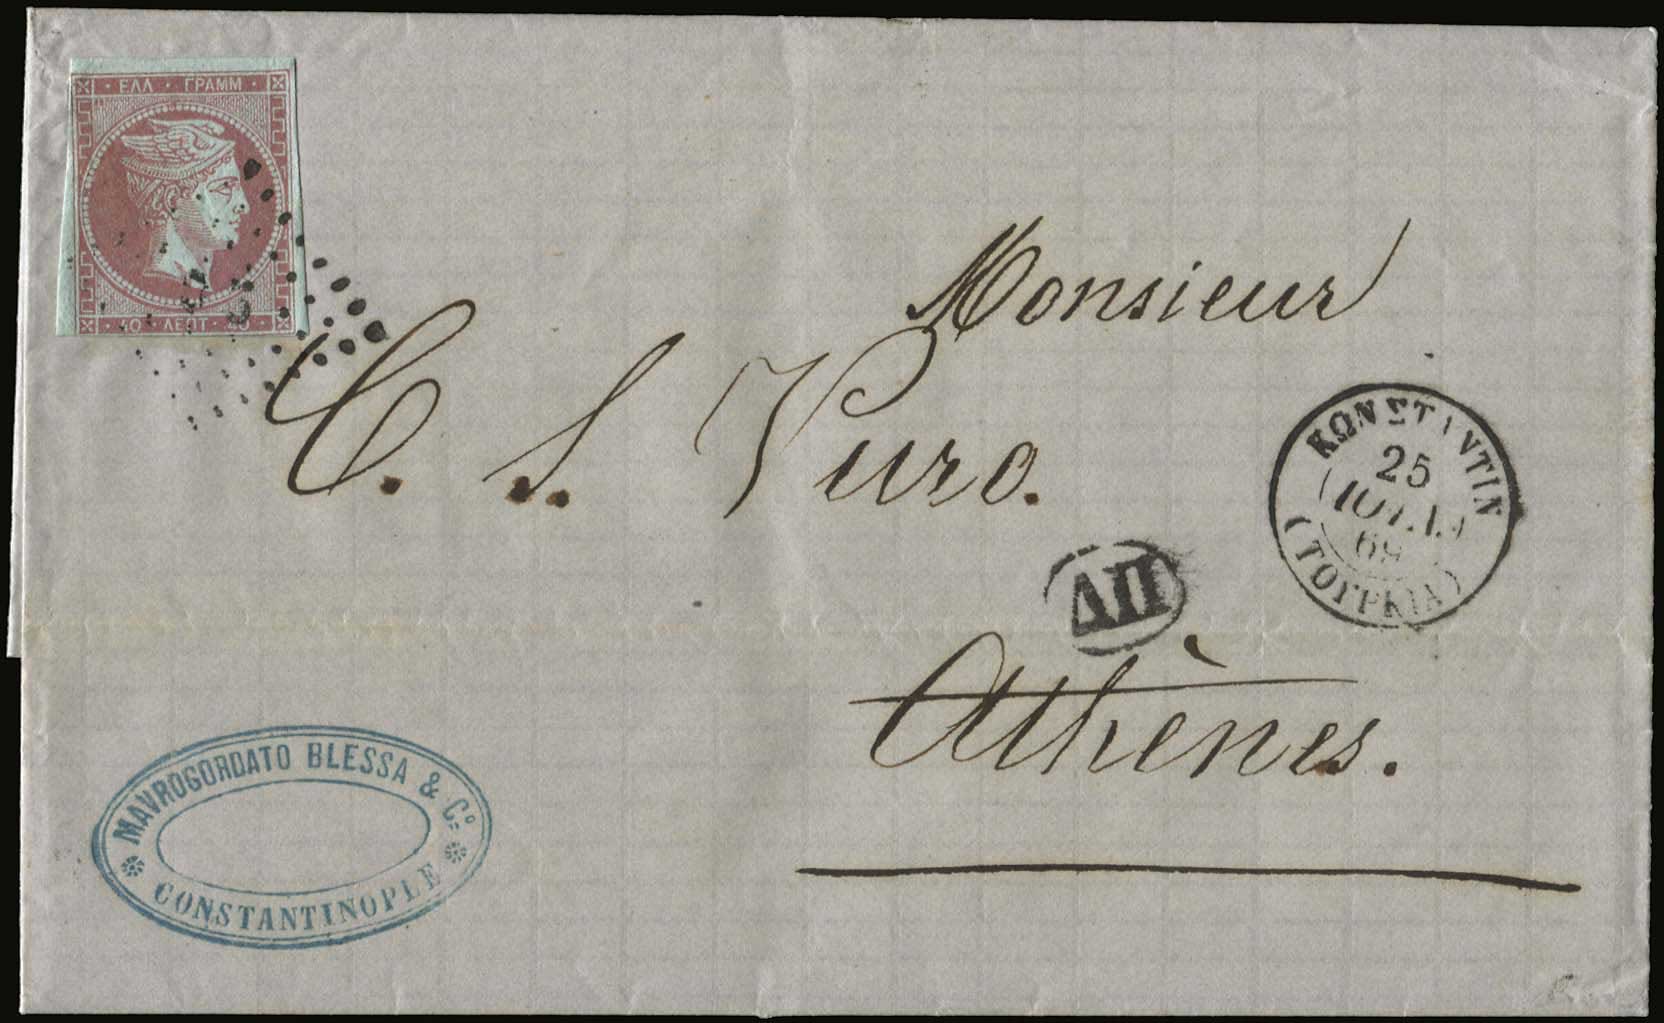 · ΕΛΛ · ΓΡΑΜΜ ·
40 · ΛΕΠΤ · 40
Monsieur
C. S. Vuro.
Athènes.
ΚΩΝΣΤΑΝΤΙΝ
25
ΙΟΥΛ.
69
(ΤΟΥΡΚΙΑ)
ΔΠ
MAVROGORDATO BLESSA & Cº.
CONSTANTINOPLE